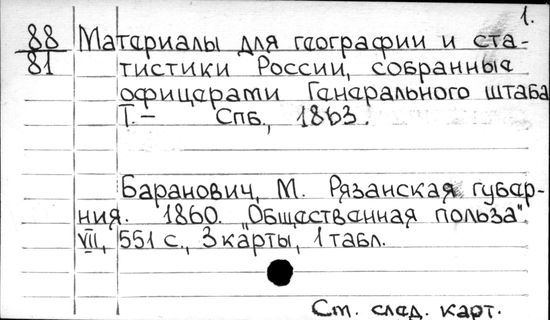 1.
88 Материалы для географии и ста-
81 тистики России, собранные
офицерами Генерального штаба
Т.- Спб., 1863.
Баранович, М. Рязанская губер-
ния. 1860. "Общественная польза".
VII, 551 с., 3 карты, 1 табл.
См. след. карт.